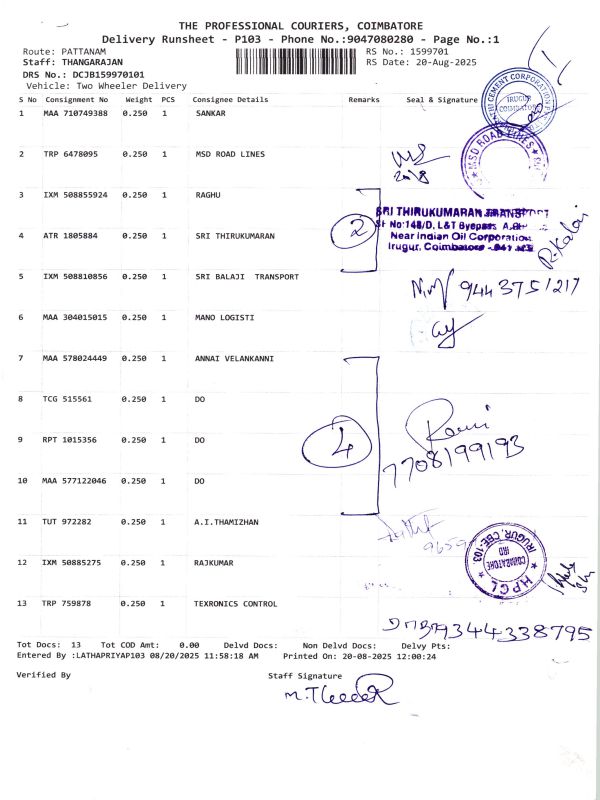 THE PROFESSIONAL COURIERS, COIMBATORE
Delivery Runsheet - P103 - Phone No.:9047080280 - Page No.:1
Route: PATTANAM RS No.: 1599701
Staff: THANGARAJAN RS Date: 20-Aug-2025
DRS No.: DCJB159970101
Vehicle: Two Wheeler Delivery
S No Consignment No Weight PCS Consignee Details Remarks Seal & Signature
1 MAA 710749388 0.250 1 SANKAR
IRUGUR
2 TRP 6478095 0.250 1 MSD ROAD LINES
MSD ROAD LINES
3 IXM 508855924 0.250 1 RAGHU
SRI THIRUKUMARAN TRANSPORT
2
4 ATR 1805884 0.250 1 SRI THIRUKUMARAN
Near Indian Oil Corporation
Irugur, Coimbatore
5 IXM 508810856 0.250 1 SRI BALAJI TRANSPORT
9443751217
6 MAA 304015015 0.250 1 MANO LOGISTI
7 MAA 578024449 0.250 1 ANNAI VELANKANNI
8 TCG 515561 0.250 1 DO
4
9 RPT 1015356 0.250 1 DO
7708199193
10 MAA 577122046 0.250 1 DO
11 TUT 972282 0.250 1 A.I.THAMIZHAN
9659
12 IXM 50885275 0.250 1 RAJKUMAR
IRUGUR, CBE-103.
COIMBATORE
IRD
HPCL
13 TRP 759878 0.250 1 TEXRONICS CONTROL
9344338795
Tot Docs: 13 Tot COD Amt: 0.00 Delvd Docs: Non Delvd Docs: Delvy Pts:
Entered By :LATHAPRIYAP103 08/20/2025 11:58:18 AM Printed On: 20-08-2025 12:00:24
Verified By Staff Signature